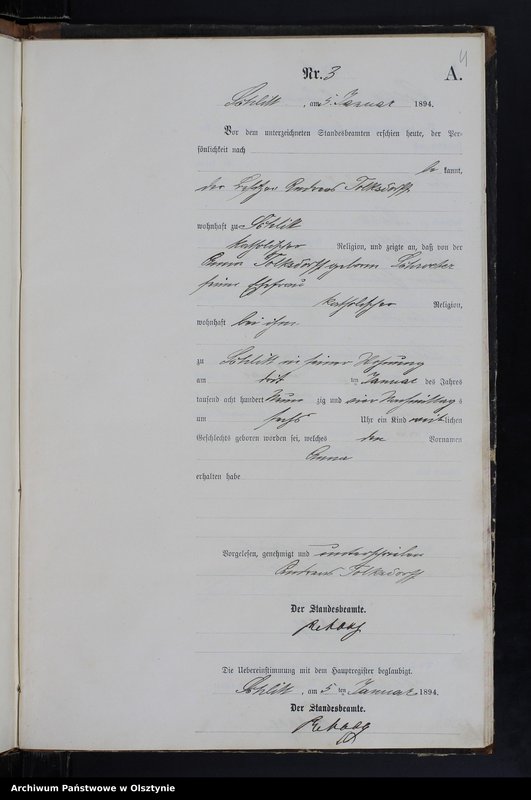 4
Nr. 3
A.
Schlitt, am 5. Januar 1894.
Vor dem unterzeichneten Standesbeamten erschien heute, der Per-
sönlichkeit nach
be kannt,
der Besitzer Andreas Tolksdorff
wohnhaft zu Schlitt
katholischer Religion, und zeigte an, daß von der
Anna Tolksdorff geboren Schroeter
seiner Ehefrau
katholischer Religion,
wohnhaft bei ihm
zu Schlitt in seiner Wohnung
am dritten Januar des Jahres
tausend acht hundert Neun zig und vier Nachmittag s
um sechs Uhr ein Kind weiblichen
Geschlechts geboren worden sei, welches den Vornamen
Anna
erhalten habe
Vorgelesen, genehmigt und unterschrieben
Andreas Tolksdorff
Der Standesbeamte.
Die Uebereinstimmung mit dem Hauptregister beglaubigt.
Schlitt, am 5ten Januar 1894.
Der Standesbeamte.
Archiwum Państwowe w Olsztynie